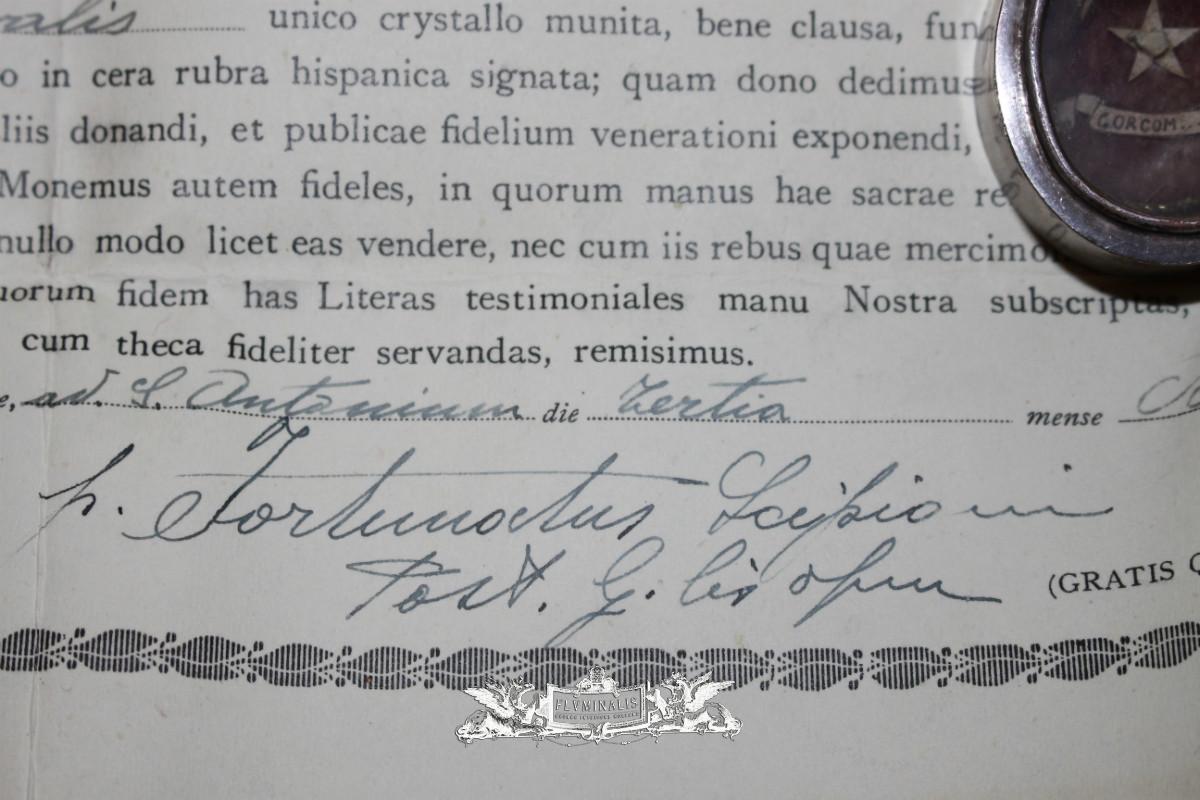 ralis unico crystallo munita, bene clausa, fun
o in cera rubra hispanica signata; quam dono dedimus
liis donandi, et publicae fidelium venerationi exponendi,
Monemus autem fideles, in quorum manus hae sacrae re
nullo modo licet eas vendere, nec cum iis rebus quae mercimo
uorum fidem has Literas testimoniales manu Nostra subscriptas,
cum theca fideliter servandas, remisimus.
e, ad. S. Antonium die Tertia mense
p. Fortunatus Scipioni
Post. G.
(GRATIS Q
GORCOM.
FLVMINALIS